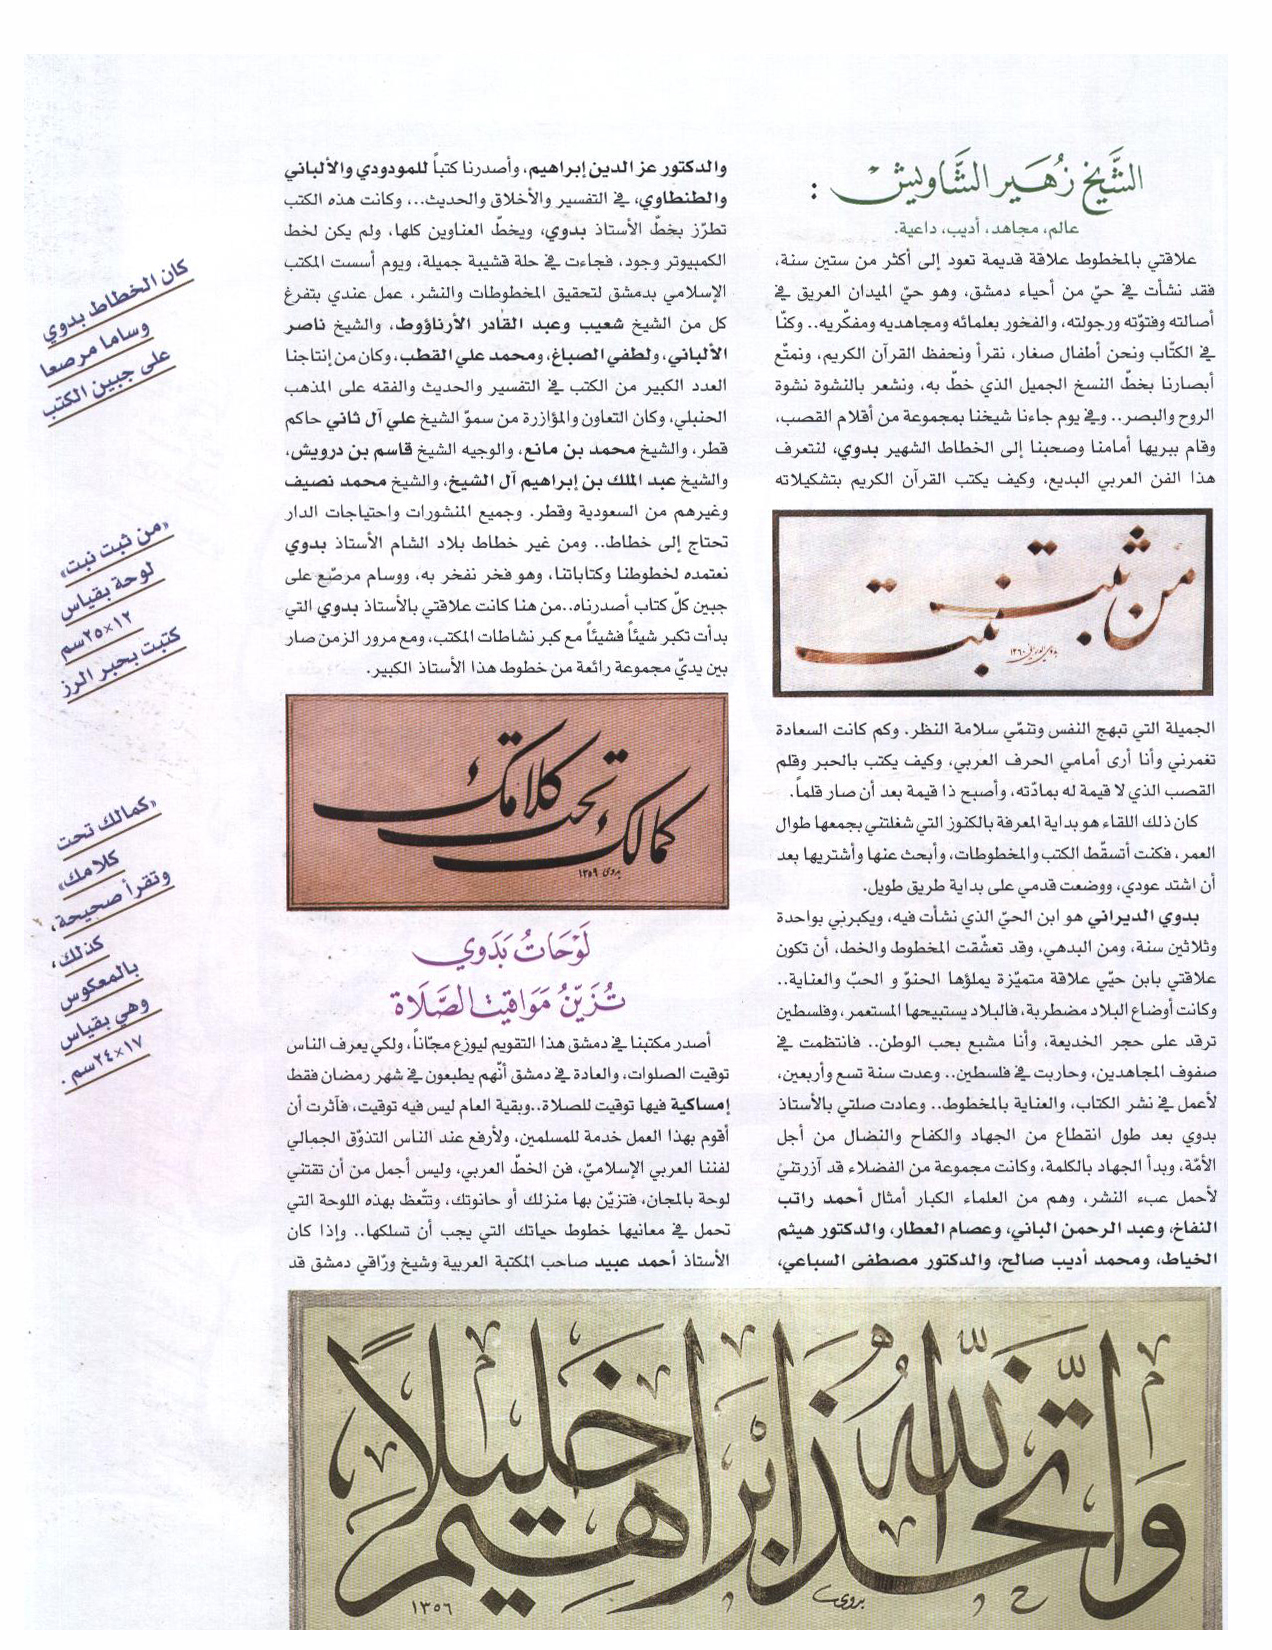 الشَّيخ زُهَير الشَّاويش :
عالم، مجاهد، أديب، داعية.
علاقتي بالمخطوط علاقة قديمة تعود إلى أكثر من ستين سنة،
فقد نشأت في حيّ من أحياء دمشق، وهو حيّ الميدان العريق في
أصالته وفتوّته ورجولته، والفخور بعلمائه ومجاهديه ومفكّريه.. وكنّا
في الكتّاب ونحن أطفال صغار، نقرأ ونحفظ القرآن الكريم، ونمتّع
أبصارنا بخطّ النسخ الجميل الذي خطّ به، ونشعر بالنشوة نشوة
الروح والبصر.. وفي يوم جاءنا شيخنا بمجموعة من أقلام القصب،
وقام ببريها أمامنا وصحبنا إلى الخطاط الشهير بدوي، لنتعرف
هذا الفن العربي البديع، وكيف يكتب القرآن الكريم بتشكيلاته
من ثبت نبت
بدوي الديراني ١٣٦٠
الجميلة التي تبهج النفس وتنمّي سلامة النظر. وكم كانت السعادة
تغمرني وأنا أرى أمامي الحرف العربي، وكيف يكتب بالحبر وقلم
القصب الذي لا قيمة له بمادّته، وأصبح ذا قيمة بعد أن صار قلماً.
كان ذلك اللقاء هو بداية المعرفة بالكنوز التي شغلتني بجمعها طوال
العمر، فكنت أتسقّط الكتب والمخطوطات، وأبحث عنها وأشتريها بعد
أن اشتد عودي، ووضعت قدمي على بداية طريق طويل.
بدوي الديراني هو ابن الحيّ الذي نشأت فيه، ويكبرني بواحدة
وثلاثين سنة، ومن البدهي، وقد تعشّقت المخطوط والخط، أن تكون
علاقتي بابن حيّي علاقة متميّزة يملؤها الحنوّ و الحبّ والعناية..
وكانت أوضاع البلاد مضطربة، فالبلاد يستبيحها المستعمر، وفلسطين
ترقد على حجر الخديعة، وأنا مشبع بحب الوطن.. فانتظمت في
صفوف المجاهدين، وحاربت في فلسطين.. وعدت سنة تسع وأربعين،
لأعمل في نشر الكتاب، والعناية بالمخطوط.. وعادت صلتي بالأستاذ
بدوي بعد طول انقطاع من الجهاد والكفاح والنضال من أجل
الأمّة، وبدأ الجهاد بالكلمة، وكانت مجموعة من الفضلاء قد آزرتني
لأحمل عبء النشر، وهم من العلماء الكبار أمثال أحمد راتب
النفاخ، وعبد الرحمن الباني، وعصام العطار، والدكتور هيثم
الخياط، ومحمد أديب صالح، والدكتور مصطفى السباعي،
والدكتور عز الدين إبراهيم، وأصدرنا كتباً للمودودي والألباني
والطنطاوي، في التفسير والأخلاق والحديث..، وكانت هذه الكتب
تطرّز بخطّ الأستاذ بدوي، ويخطّ العناوين كلها، ولم يكن لخط
الكمبيوتر وجود، فجاءت في حلة قشيبة جميلة، ويوم أسست المكتب
الإسلامي بدمشق لتحقيق المخطوطات والنشر، عمل عندي بتفرغ
كل من الشيخ شعيب وعبد القادر الأرناؤوط، والشيخ ناصر
الألباني، ولطفي الصباغ، ومحمد علي القطب، وكان من إنتاجنا
العدد الكبير من الكتب في التفسير والحديث والفقه على المذهب
الحنبلي، وكان التعاون والمؤازرة من سموّ الشيخ علي آل ثاني حاكم
قطر، والشيخ محمد بن مانع، والوجيه الشيخ قاسم بن درويش،
والشيخ عبد الملك بن إبراهيم آل الشيخ، والشيخ محمد نصيف
وغيرهم من السعودية وقطر. وجميع المنشورات واحتياجات الدار
تحتاج إلى خطاط.. ومن غير خطاط بلاد الشام الأستاذ بدوي
نعتمده لخطوطنا وكتاباتنا، وهو فخر نفخر به، ووسام مرصّع على
جبين كلّ كتاب أصدرناه..من هنا كانت علاقتي بالأستاذ بدوي التي
بدأت تكبر شيئاً فشيئاً مع كبر نشاطات المكتب، ومع مرور الزمن صار
بين يديّ مجموعة رائعة من خطوط هذا الأستاذ الكبير.
كمالك تحت كلامك
بدوي ١٣٥٩
لَوْحَاتُ بَدَوي
تُزَيّنُ مَوَاقيتَ الصَّلَاة
أصدر مكتبنا في دمشق هذا التقويم ليوزع مجّاناً، ولكي يعرف الناس
توقيت الصلوات، والعادة في دمشق أنّهم يطبعون في شهر رمضان فقط
إمساكية فيها توقيت للصلاة..وبقية العام ليس فيه توقيت، فآثرت أن
أقوم بهذا العمل خدمة للمسلمين، ولأرفع عند الناس التذوّق الجمالي
لفننا العربي الإسلاميّ، فن الخطّ العربي، وليس أجمل من أن تقتني
لوحة بالمجان، فتزيّن بها منزلك أو حانوتك، وتتّعظ بهذه اللوحة التي
تحمل في معانيها خطوط حياتك التي يجب أن تسلكها.. وإذا كان
الأستاذ أحمد عبيد صاحب المكتبة العربية وشيخ ورّاقي دمشق قد
كان الخطاط بدوي
وساما مرصعا
على جبين الكتب
«من ثبت نبت»
لوحة بقياس
١٢×٢٥سم
كتبت بحبر الرز
«كمالك تحت
كلامك»
وتقرأ صحيحة،
كذلك،
بالمعكوس
وهي بقياس
١٧×٢٤سم .
وَاتَّخَذَ اللّٰهُ إِبْرَاهِيمَ خَلِيلاً
بدوي
١٣٥٦